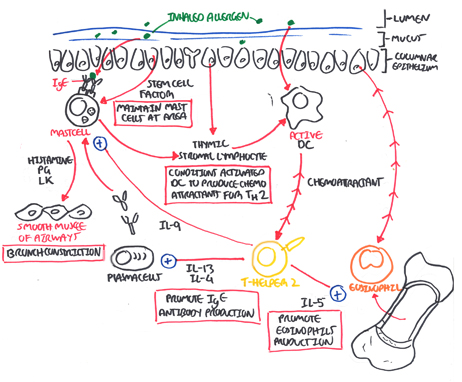 INHALED ALLERGEN
LUMEN
MUCUS
COLUMNAR
EPITHELIUM
IgE
STEM CELL
FACTOR
MAINTAIN MAST
CELLS AT AREA
MASTCELL
THYMIC
STROMAL LYMPHOCYTE
CONDITIONS ACTIVATED
DC TO PRODUCE CHEMO
ATTRACTANT FOR TH2
ACTIVE
DC
CHEMOATTRACTANT
HISTAMINE
PG
LK
SMOOTH MUSCLE
OF AIRWAYS
BRONCHCONSTRICTION
IL-9
PLASMACELL
IL-13
IL-4
PROMOTE IgE
ANTIBODY PRODUCTION
T-HELPER 2
IL-5
PROMOTE
EOSINOPHILS
PRODUCTION
EOSINOPHIL